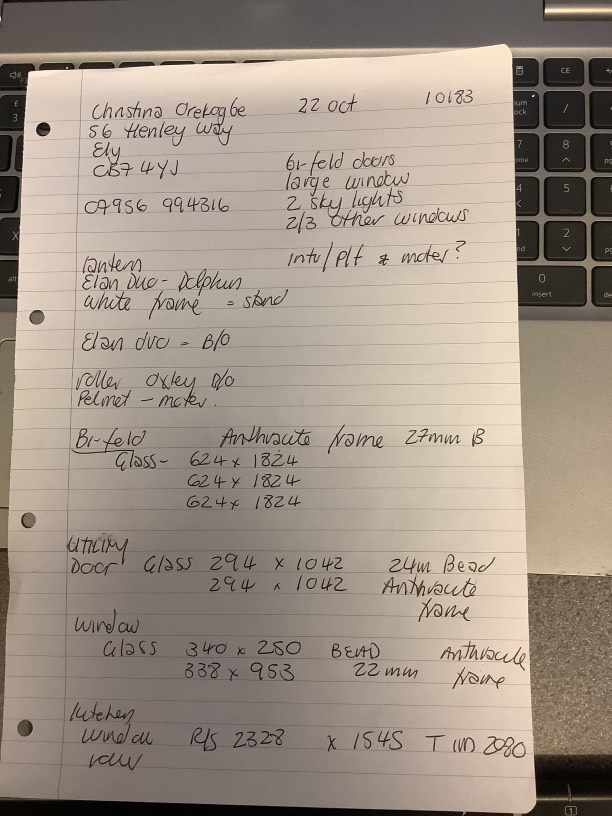 Christina Orekogbe 22 oct 10183
56 Henley Way
Ely
CB7 4YJ
07956 994316
bi-feld doors
large window
2 sky lights
2/3 other windows
Intu/Pft & moter?
lantern
Elan Duo - Dolphin
white frame = stand
Elan duo = B/O
roller oxley B/O
Pelmet - moter.
Bi-feld Anthracite frame 27mm B
Glass - 624 x 1824
624 x 1824
624 x 1824
Utility
Door Glass 294 x 1042 24m Bead
294 x 1042 Anthracite
frame
Window
Glass 340 x 250 BEAD Anthracite
338 x 953 22mm frame
Kitchen
window R/S 2328 x 1545 T